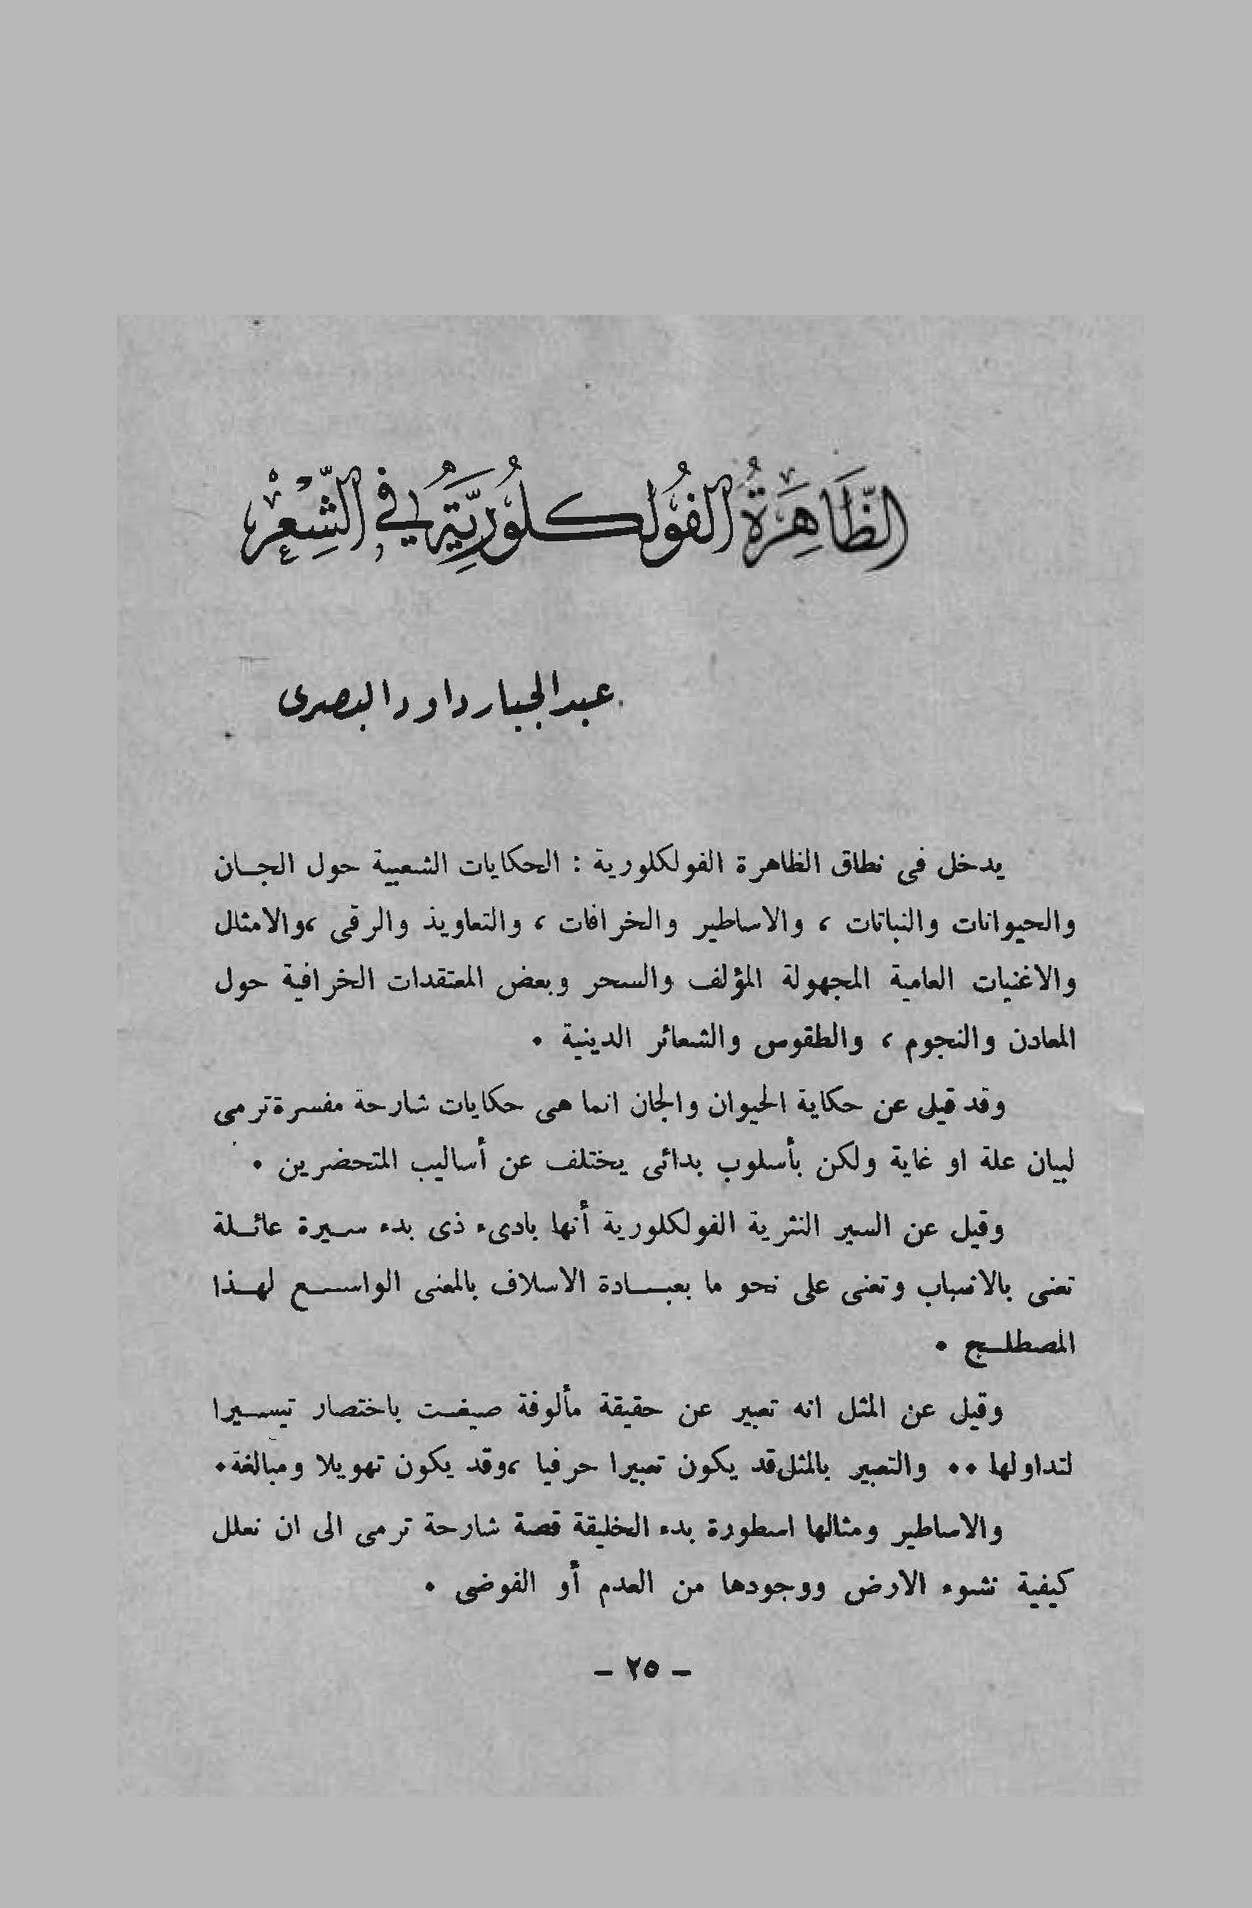 الظَّاهِرَةُ الفُولكلُورِيَّةُ في الشِّعْرِ
عبد الجبار داود البصرى
يدخل فى نطاق الظاهرة الفولكلورية : الحكايات الشعبية حول الجـان
والحيوانات والنباتات ، والاساطير والخرافات ، والتعاويذ والرقى ،والامثال
والاغنيات العامية المجهولة المؤلف والسحر وبعض المعتقدات الخرافية حول
المعادن والنجوم ، والطقوس والشعائر الدينية .
وقد قيل عن حكاية الحيوان والجان انما هى حكايات شارحة مفسرة ترمى
لبيان علة او غاية ولكن بأسلوب بدائى يختلف عن أساليب المتحضرين .
وقيل عن السير النثرية الفولكلورية أنها بادىء ذى بدء سـيرة عائـلة
تعنى بالانساب وتعنى على نحو ما بعبـــادة الاسلاف بالمعنى الواســـع لهـذا
المصطلـح .
وقيل عن المثل انه تعبير عن حقيقة مألوفة صيغـت باختصار تيسـيرا
لتداولها .. والتعبير بالمثل قد يكون تعبيرا حرفيا ،وقد يكون تهويلا ومبالغة.
والاساطير ومثالها اسطورة بدء الخليقة قصة شارحة ترمى الى ان تعلل
كيفية نشوء الارض ووجودها من العدم أو الفوضى .
- ٢٥ -